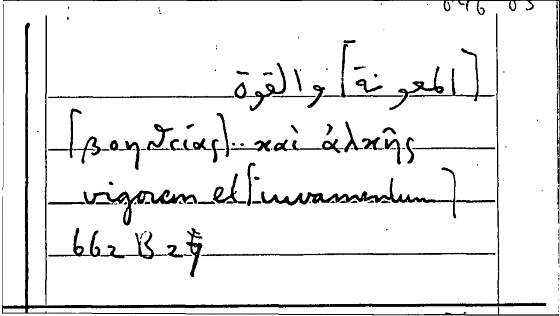 [المعونة] والقوة
[βοηθείας].. καὶ ἀλκῆς
vigorem et [iuvamentum]
662 B 27